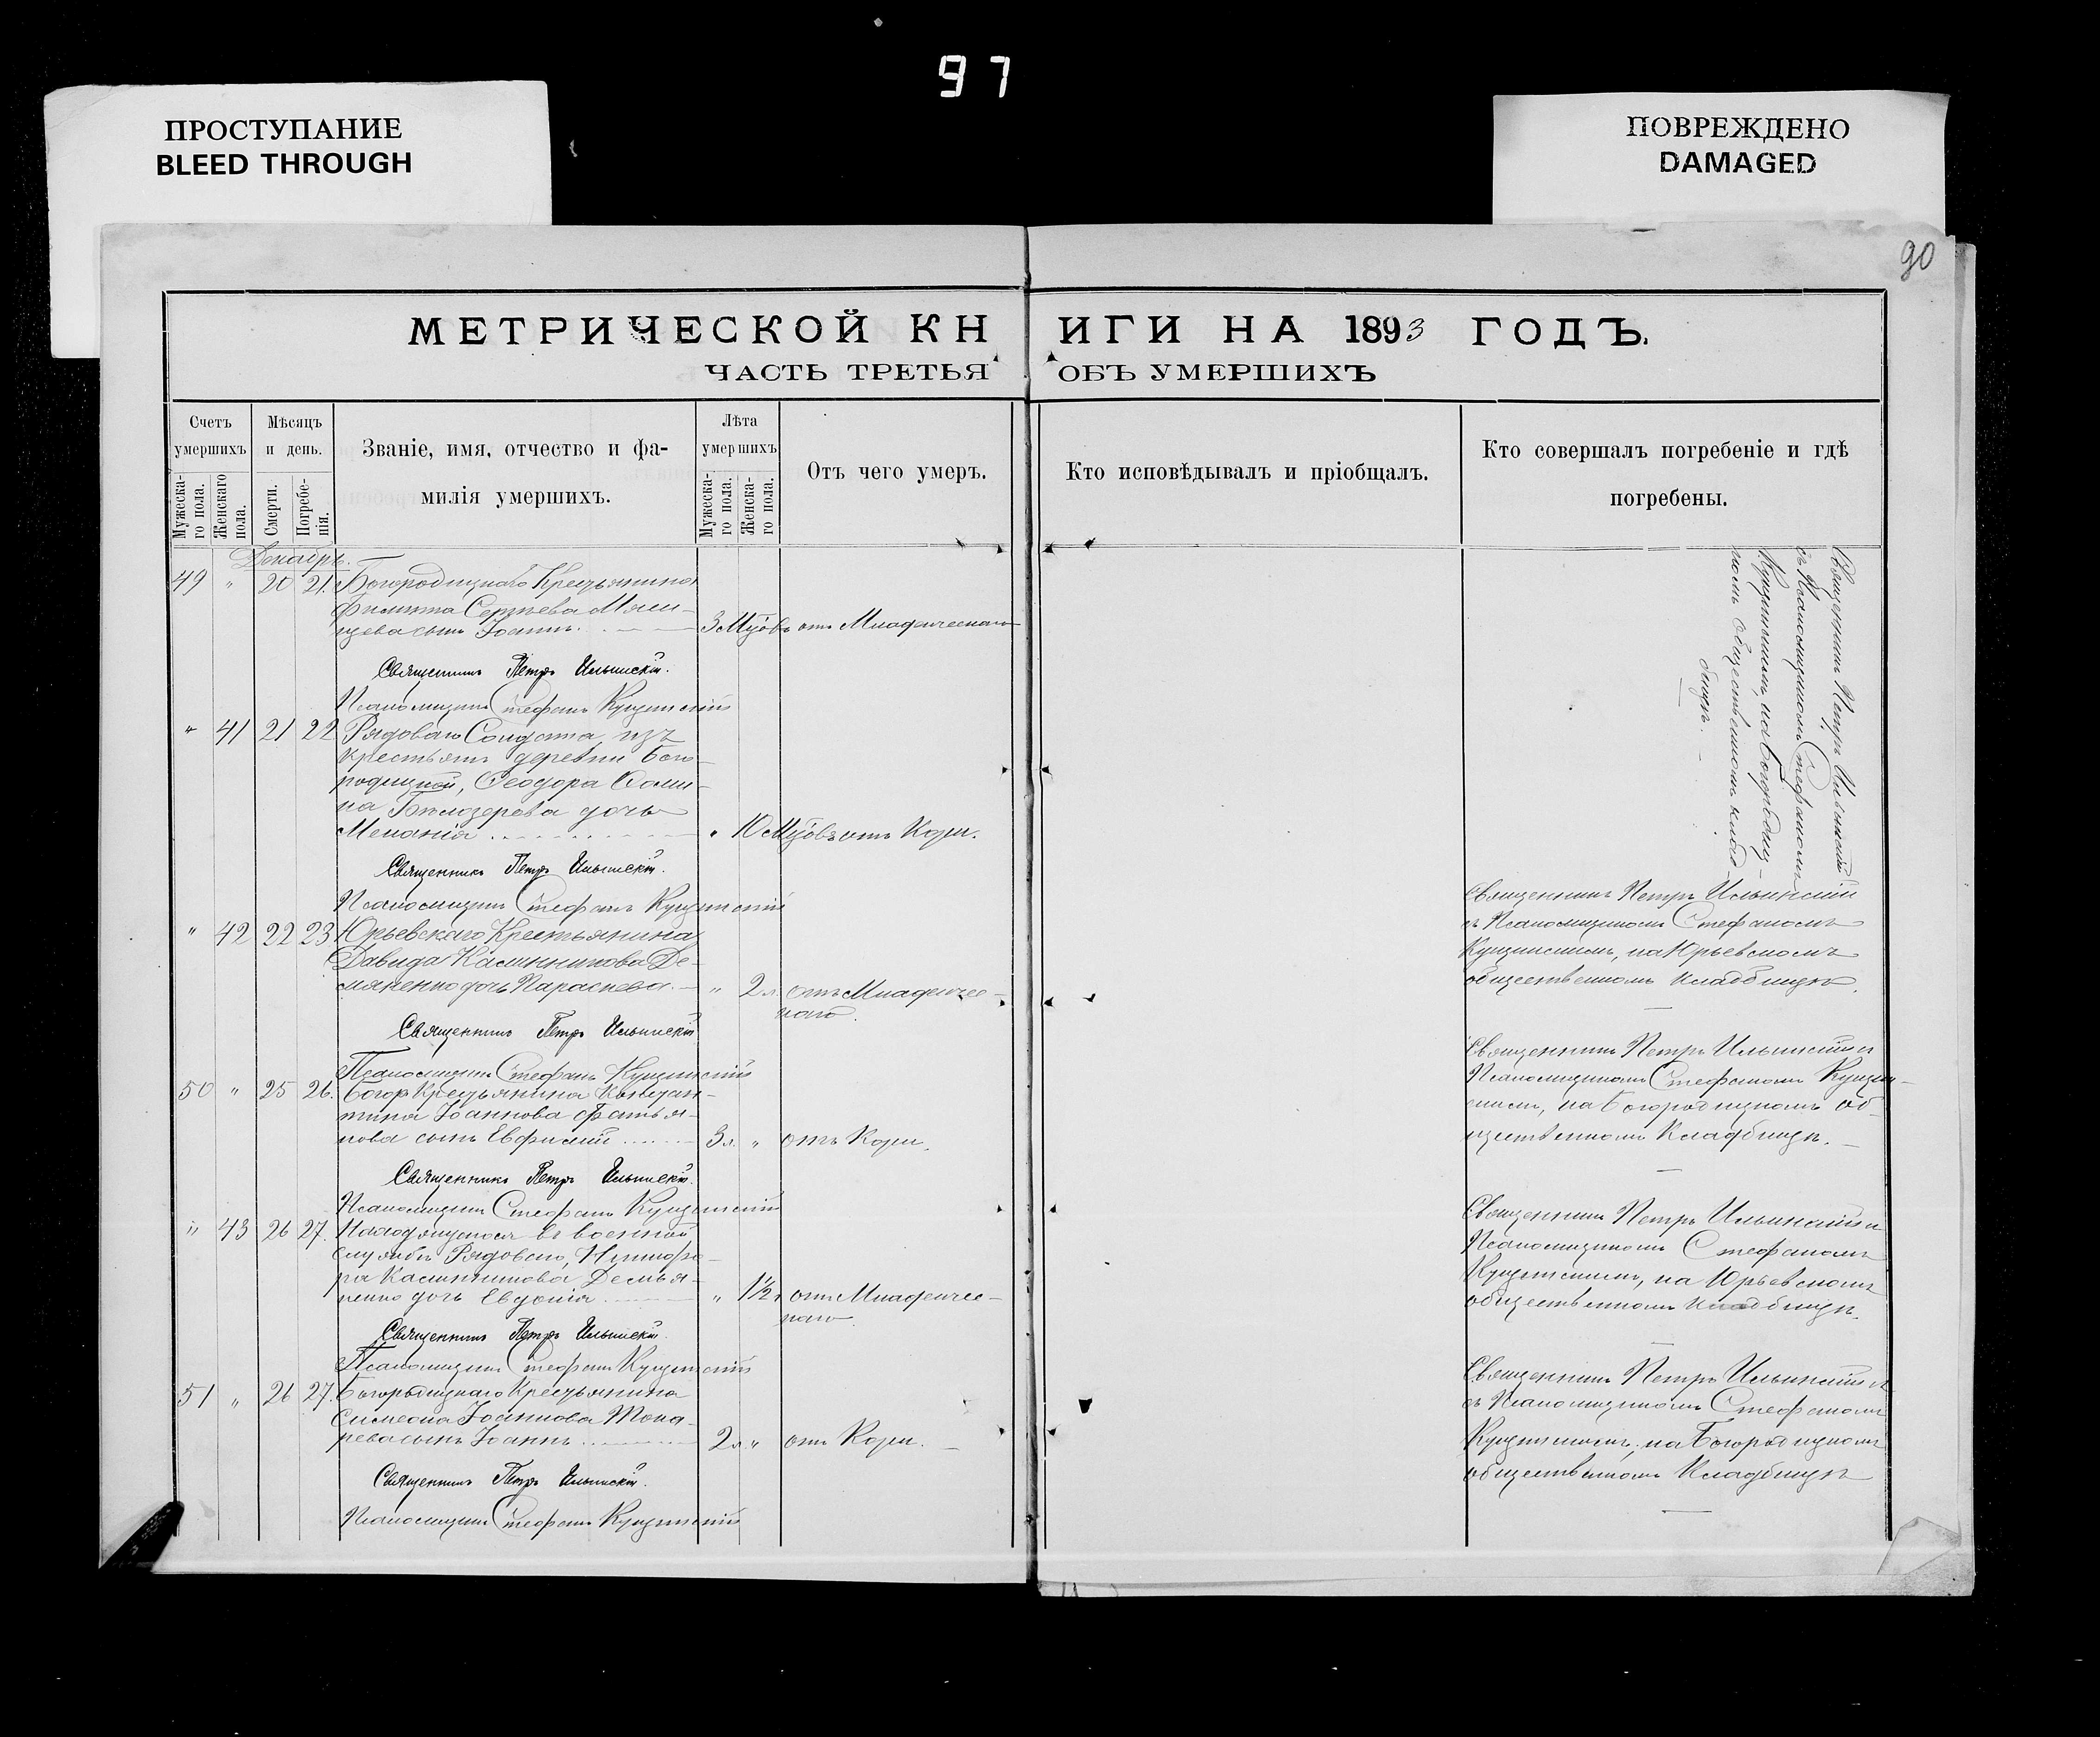 97
ПРОСТУПАНИЕ
BLEED THROUGH
ПОВРЕЖДЕНО
DAMAGED
90
МЕТРИЧЕСКОЙ КНИГИ НА 1893 ГОДЪ.
ЧАСТЬ ТРЕТЬЯ ОБЪ УМЕРШИХЪ
Счетъ умершихъ
Мужеска-го пола.
Женскаго пола.
Мѣсяцъ и день.
Смерти.
Погребе-нія.
Званіе, имя, отчество и фа-
милія умершихъ.
Лѣта умершихъ
Мужеска-го пола.
Женска-го пола.
Отъ чего умеръ.
Кто исповѣдывалъ и пріобщалъ.
Кто совершалъ погребеніе и гдѣ
погребены.
Декабрь.
49 " 20 21. Богородицкаго Крестьянина
Филиппа Сергѣева
сынъ Іоаннъ 3 Мцовъ отъ Младенческаго
Священникъ Петръ Ильинскій.
Псаломщикъ Стефанъ
Священникъ Петръ Ильинскій
съ Псаломщикомъ Стефаномъ
на Богородиц-
комъ общественномъ кладб-
бищѣ.
" 41 21 22 Рядоваго Солдата изъ
крестьянъ деревни Бого-
родицкой, Ѳеодора
Бѣлозерова дочь
Меланія " 10 Мцовъ отъ Кори.
Священникъ Петръ Ильинскій.
Псаломщикъ Стефанъ
" 42 22 23 Юрьевскаго Крестьянина
Давида Калинникова Де-
мяненко дочь Параскева. " 2 л. отъ Младенчес-
каго.
Священникъ Петръ Ильинскій
Псаломщикъ Стефанъ
Священникъ Петръ Ильинскій
съ Псаломщикомъ Стефаномъ
на Юрьевскомъ
общественномъ кладбищѣ.
50 " 25 26. Богор Крестьянина Констан-
тина Іоаннова Фатья-
нова сынъ Евфимій 3 л. " отъ Кори.
Священникъ Петръ Ильинскій.
Псаломщикъ Стефанъ
Священникъ Петръ Ильинскій и
Псаломщикомъ Стефаномъ
на Богородицкомъ об-
щественномъ Кладбищѣ.
" 43 26 27. Находящагося въ военной
службѣ Рядоваго, Никифо-
ра Калинникова Демья-
ненко дочь Евдокія " 1½ отъ Младенчес-
каго
Священникъ Петръ Ильинскій.
Псаломщикъ Стефанъ
Священникъ Петръ Ильинскій и
Псаломщикомъ Стефаномъ
на Юрьевскомъ
общественномъ кладбищѣ.
51 " 26 27. Богородицкаго Крестьянина
Симеона Іоаннова Тока-
рева сынъ Іоаннъ 2 л. " отъ Кори.
Священникъ Петръ Ильинскій.
Псаломщикъ Стефанъ
Священникъ Петръ Ильинскій и
съ Псаломщикомъ Стефаномъ
на Богородицкомъ
общественномъ Кладбищѣ